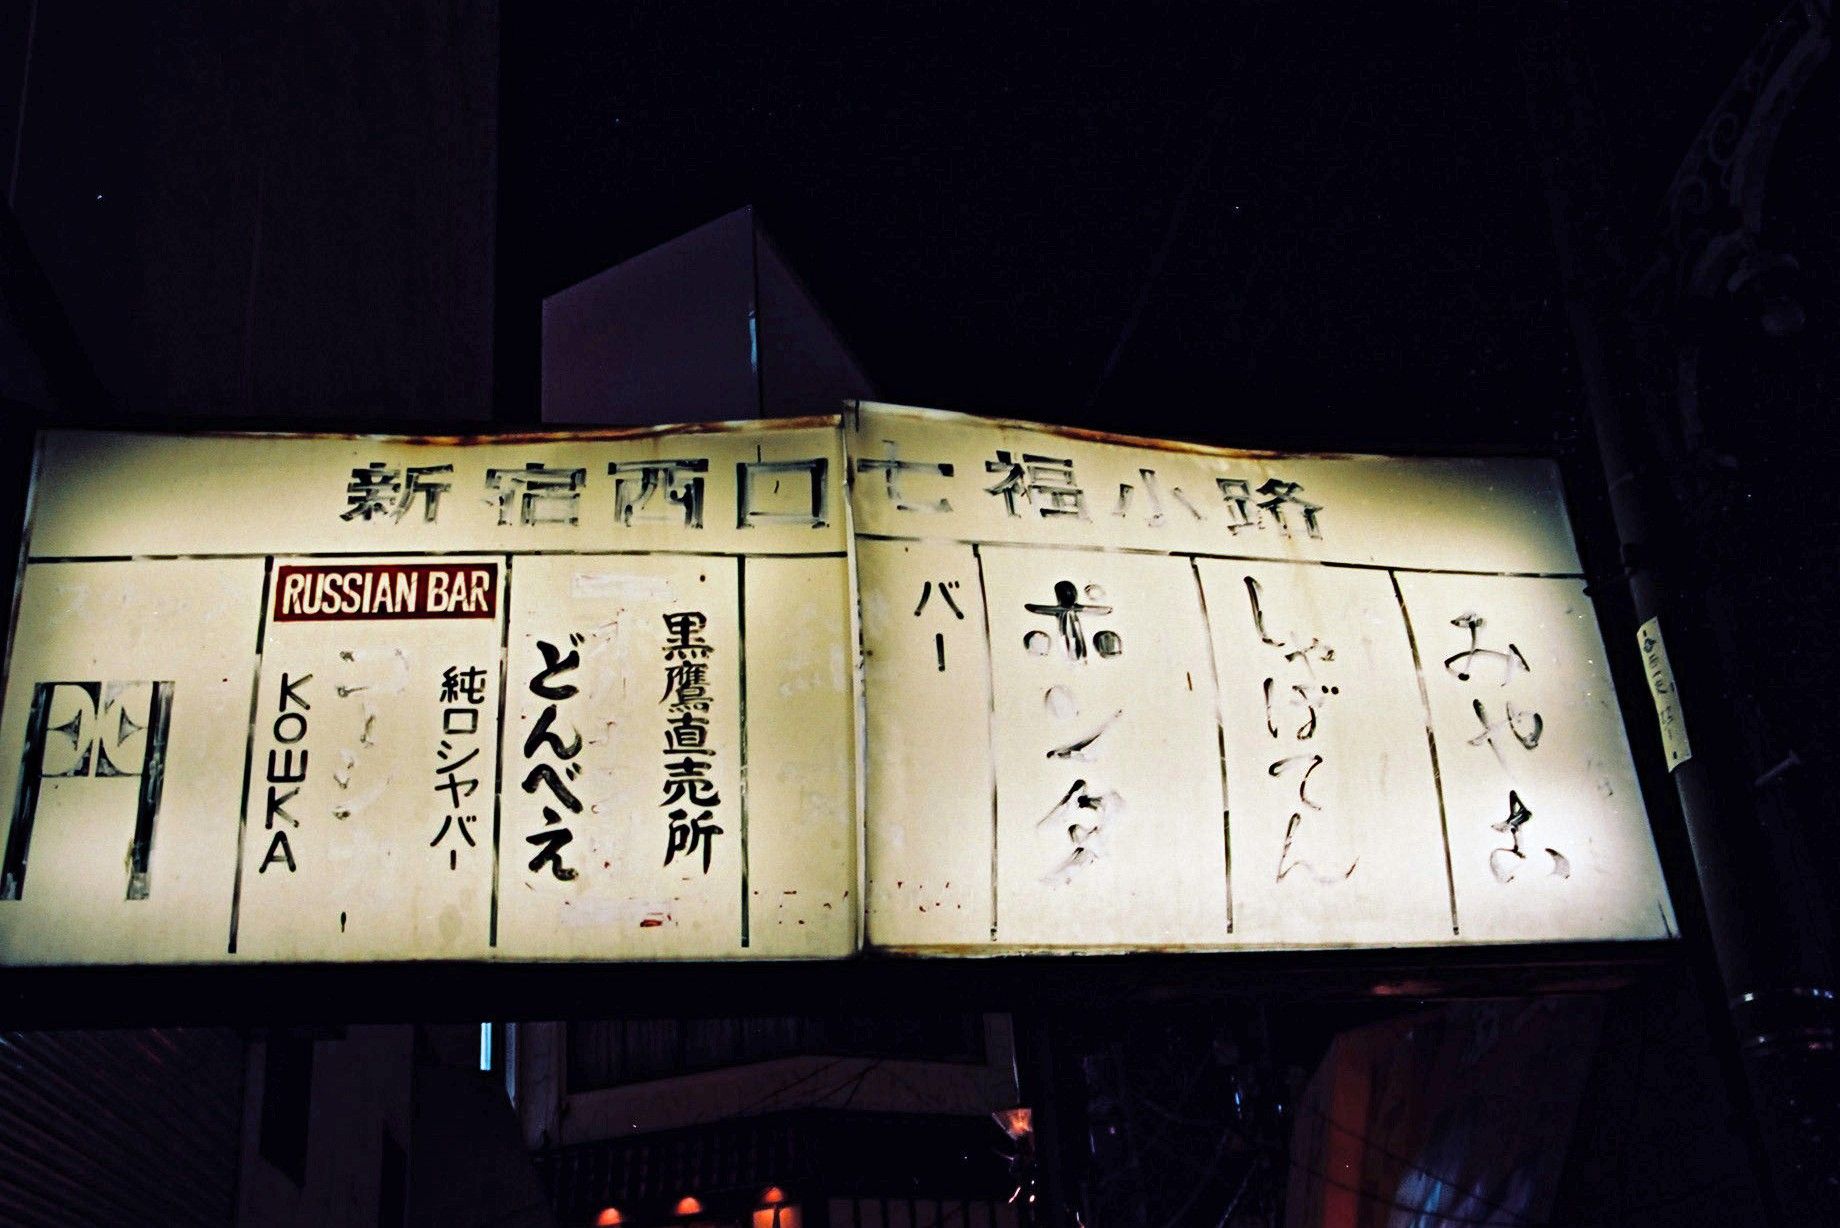 新宿西口七福小路
みやこ
しゃぼてん
ポンタ
バー
黒鷹直売所
どんべえ
RUSSIAN BAR
純ロシヤバー
КОШКА
門